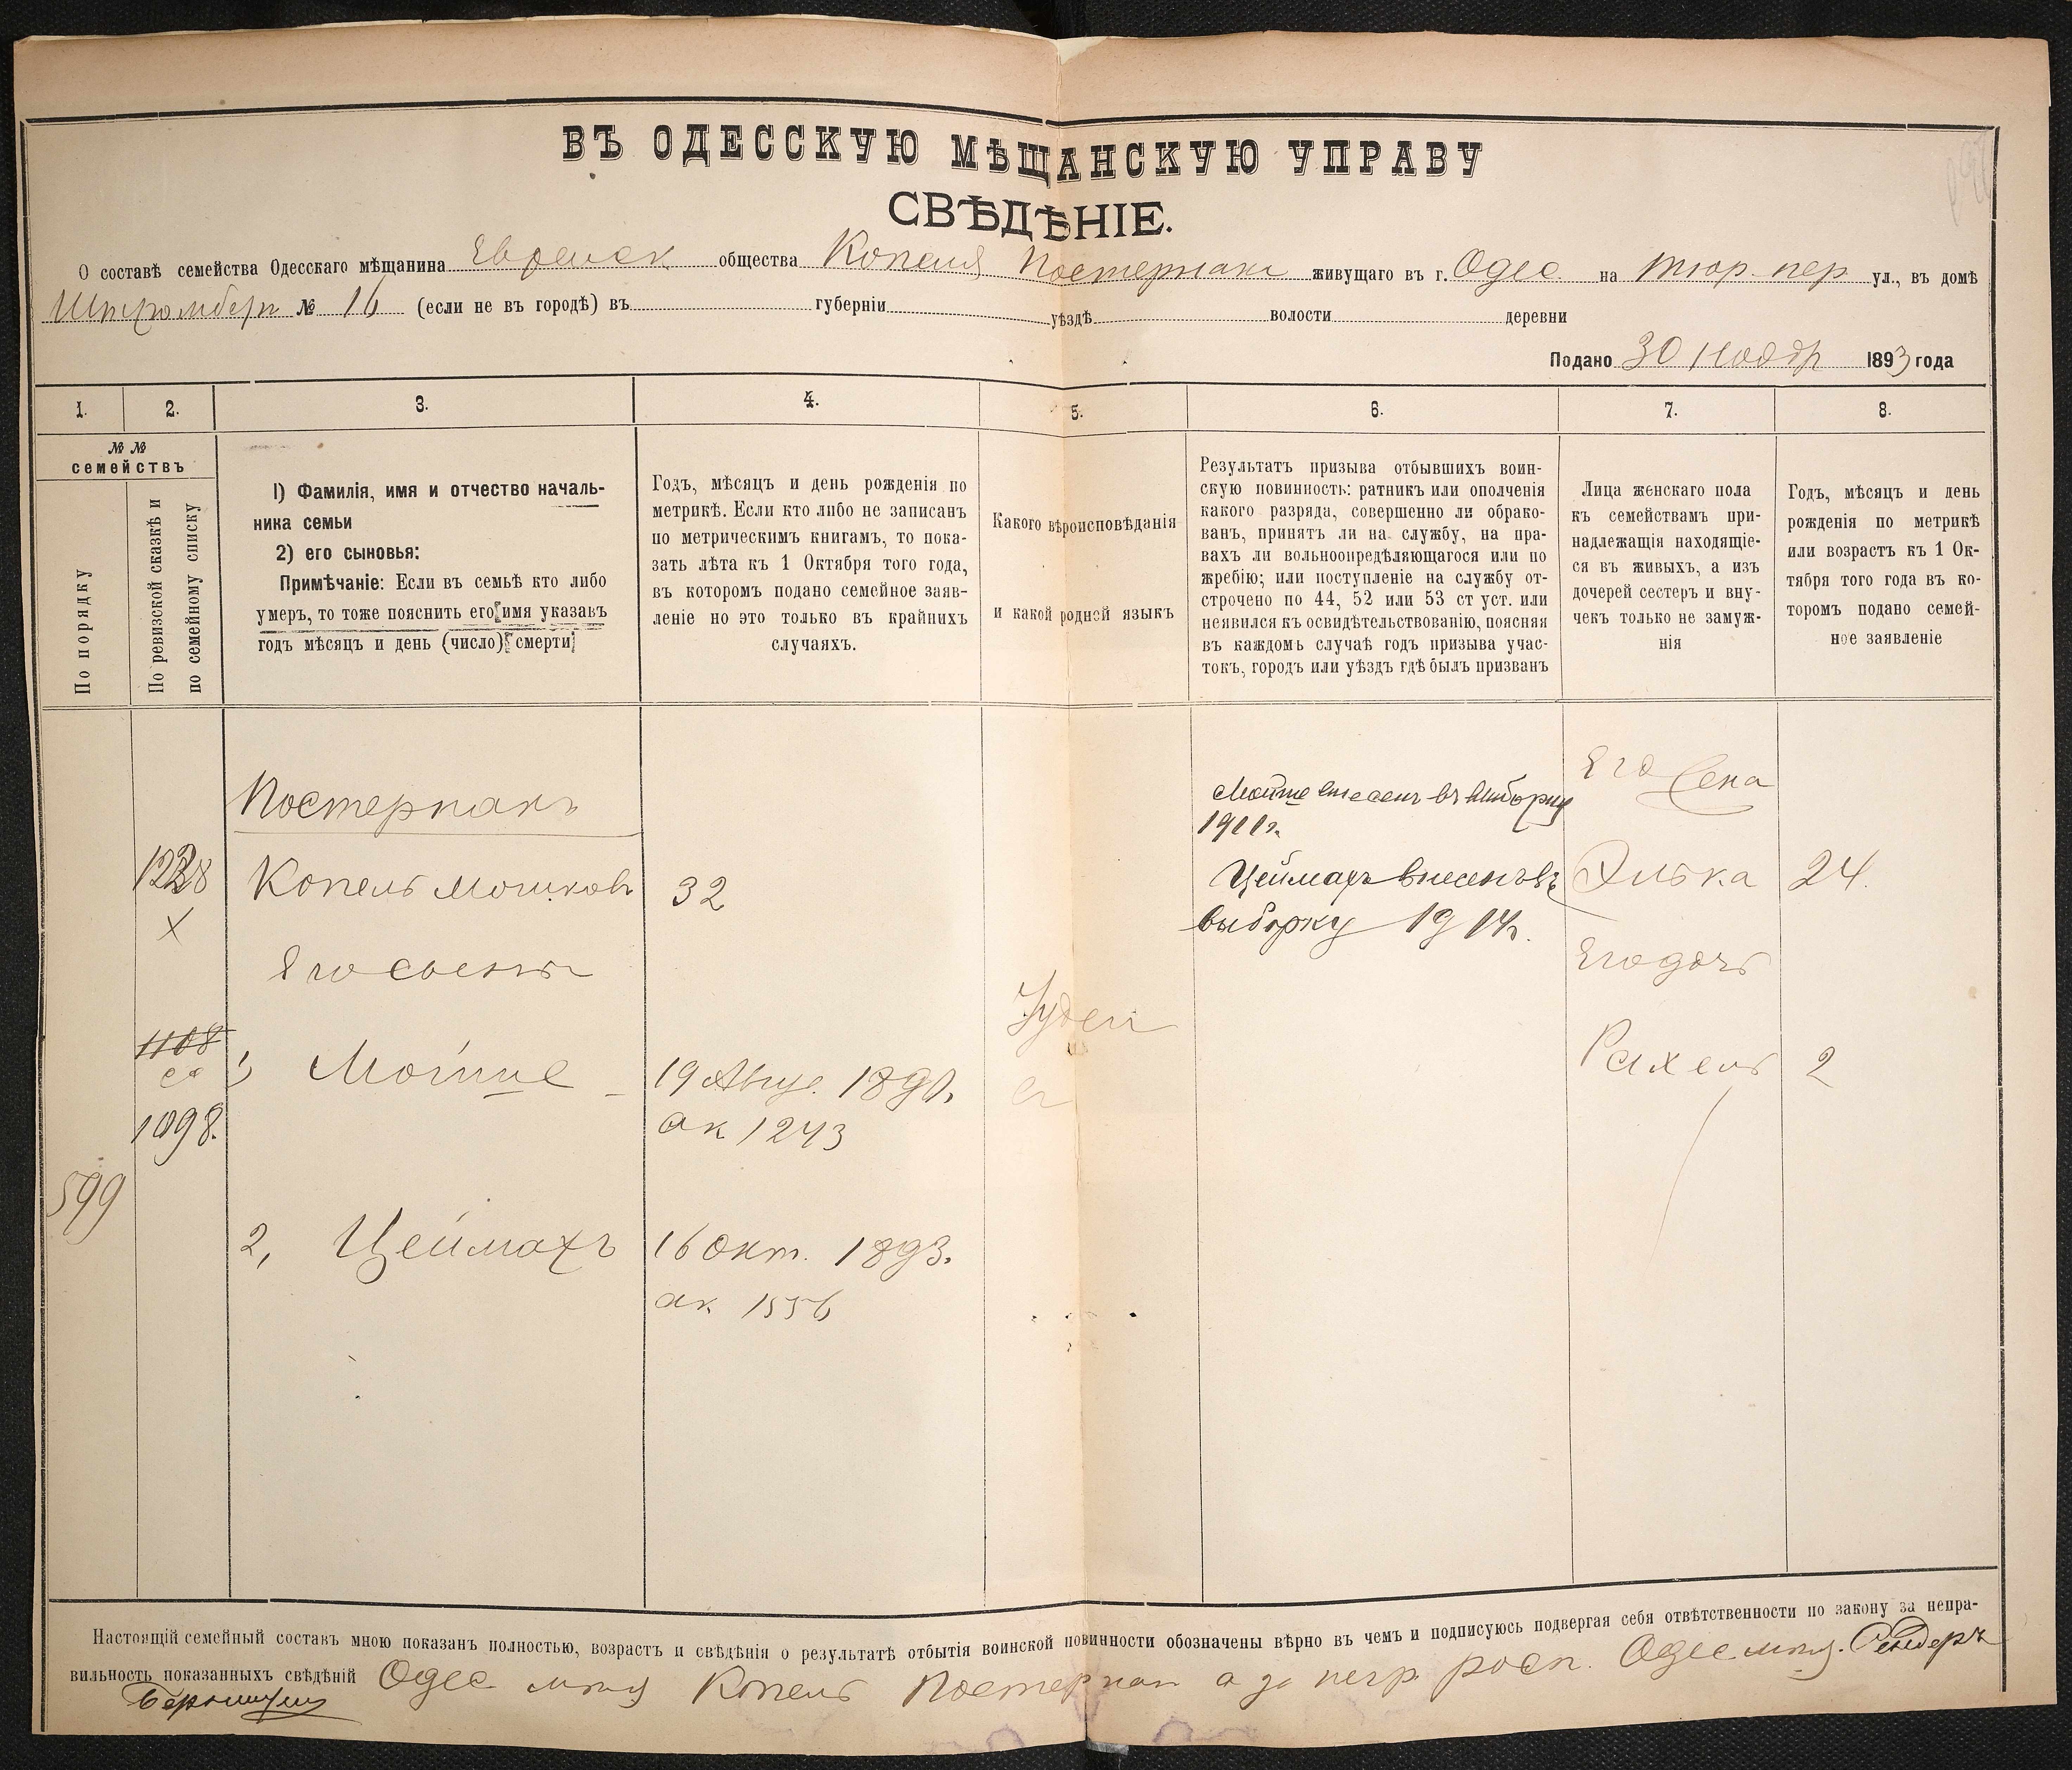 ВЪ ОДЕССКУЮ МѢЩАНСКУЮ УПРАВУ
СВѢДѢНІЕ.
О составѣ семейства Одесскаго мѣщанина Еврейск общества Копеля Постернака живущаго въ г. Одес. на тюр. пер. ул., въ домѣ
Штромберг № 16 (если не въ городѣ) въ губерніи уѣздѣ волости деревни
Подано 30 Ноябр 1893 года
1. 2. 3. 4. 5. 6. 7. 8.
№ №
семействъ
По порядку
По ревизской сказкѣ и
по семейному списку
1) Фамилія, имя и отчество началь-
ника семьи
2) его сыновья:
Примѣчаніе: Если въ семьѣ кто либо
умеръ, то тоже пояснить его имя указавъ
годъ мѣсяцъ и день (число) смерти
Годъ, мѣсяцъ и день рожденія по
метрикѣ. Если кто либо не записанъ
по метрическимъ книгамъ, то пока-
зать лѣта къ 1 Октября того года,
въ которомъ подано семейное заяв-
леніе но это только въ крайнихъ
случаяхъ.
Какого вѣроисповѣданія
и какой родной языкъ
Результатъ призыва отбывшихъ воин-
скую повинность: ратникъ или ополченія
какого разряда, совершенно ли обрако-
ванъ, принятъ ли на службу, на пра-
вахъ ли вольноопредѣляющагося или по
жребію; или поступленіе на службу от-
строчено по 44, 52 или 53 ст уст. или
неявился къ освидѣтельствованію, поясняя
въ каждомъ случаѣ годъ призыва учас-
токъ, городъ или уѣздъ гдѣ былъ призванъ
Лица женскаго пола
къ семействамъ при-
надлежащія находящіе-
ся въ живыхъ, а изъ
дочерей сестеръ и вну-
чекъ только не замуж-
нія
Годъ, мѣсяцъ и день
рожденія по метрикѣ
или возрастъ къ 1 Ок-
тября того года въ ко-
торомъ подано семей-
ное заявленіе
Постернакъ
1228
х
Копель Мошковъ 32
Его сыновья
1108
1098.
1, Мойше 19 Авгус. 1890.
ак 1243
599
2, Цеймахъ 16 Окт. 1893.
ак. 1556
Іудей
Мойше внесенъ въ выборку
1911г.
Цеймахъ внесенъ въ
выборку 1914г.
Его жена
Элька 24.
Его дочь
Рахель 2
Настоящій семейный составъ мною показанъ полностью, возрастъ и свѣдѣнія о результатѣ отбытія воинской повинности обозначены вѣрно въ чемъ и подписуюсь подвергая себя отвѣтственности по закону за непра-
вильность показанныхъ свѣдѣній Одес мѣщ Копель Постернак а за негр росп. Одес мѣщ. Сендеръ